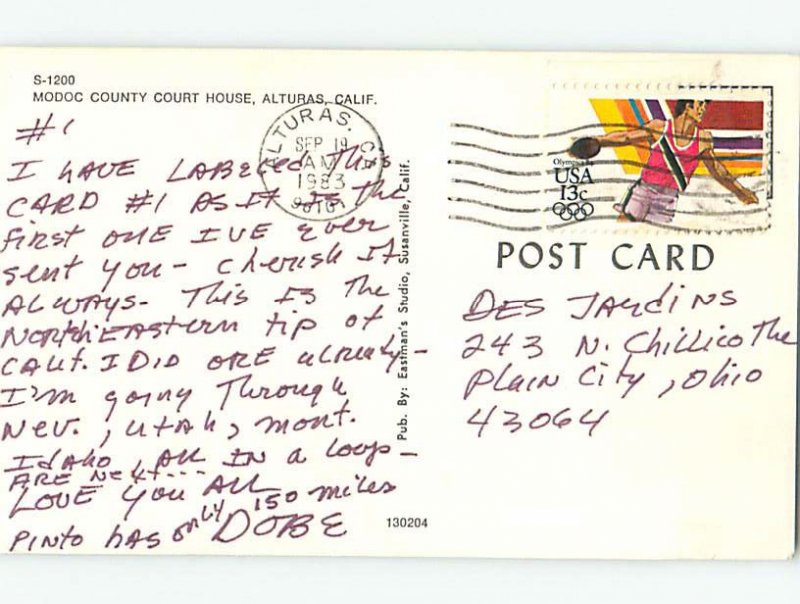 S-1200
MODOC COUNTY COURT HOUSE, ALTURAS, CALIF.
#1
I HAVE LABELED This
CARD #1 AS IT IS The
first ONE IVE ever
sent you - Cherish It
ALWAYS. This IS The
NORTHEASTERN tip of
CALIF. I DID ORE already -
I'm going Through
Nev., UtAh, mont.
IdAho, ALL IN a loop -
ARE NeXt...
LOVE you ALL
PINTO hAS only 150 miles
DOBE
ALTURAS, CA
SEP 19
AM
1983
96101
Pub. By: Eastman's Studio, Susanville, Calif.
130204
Olympics 84
USA
13c
POST CARD
DES JARdiNS
243 N. Chillicothe
Plain City, Ohio
43064